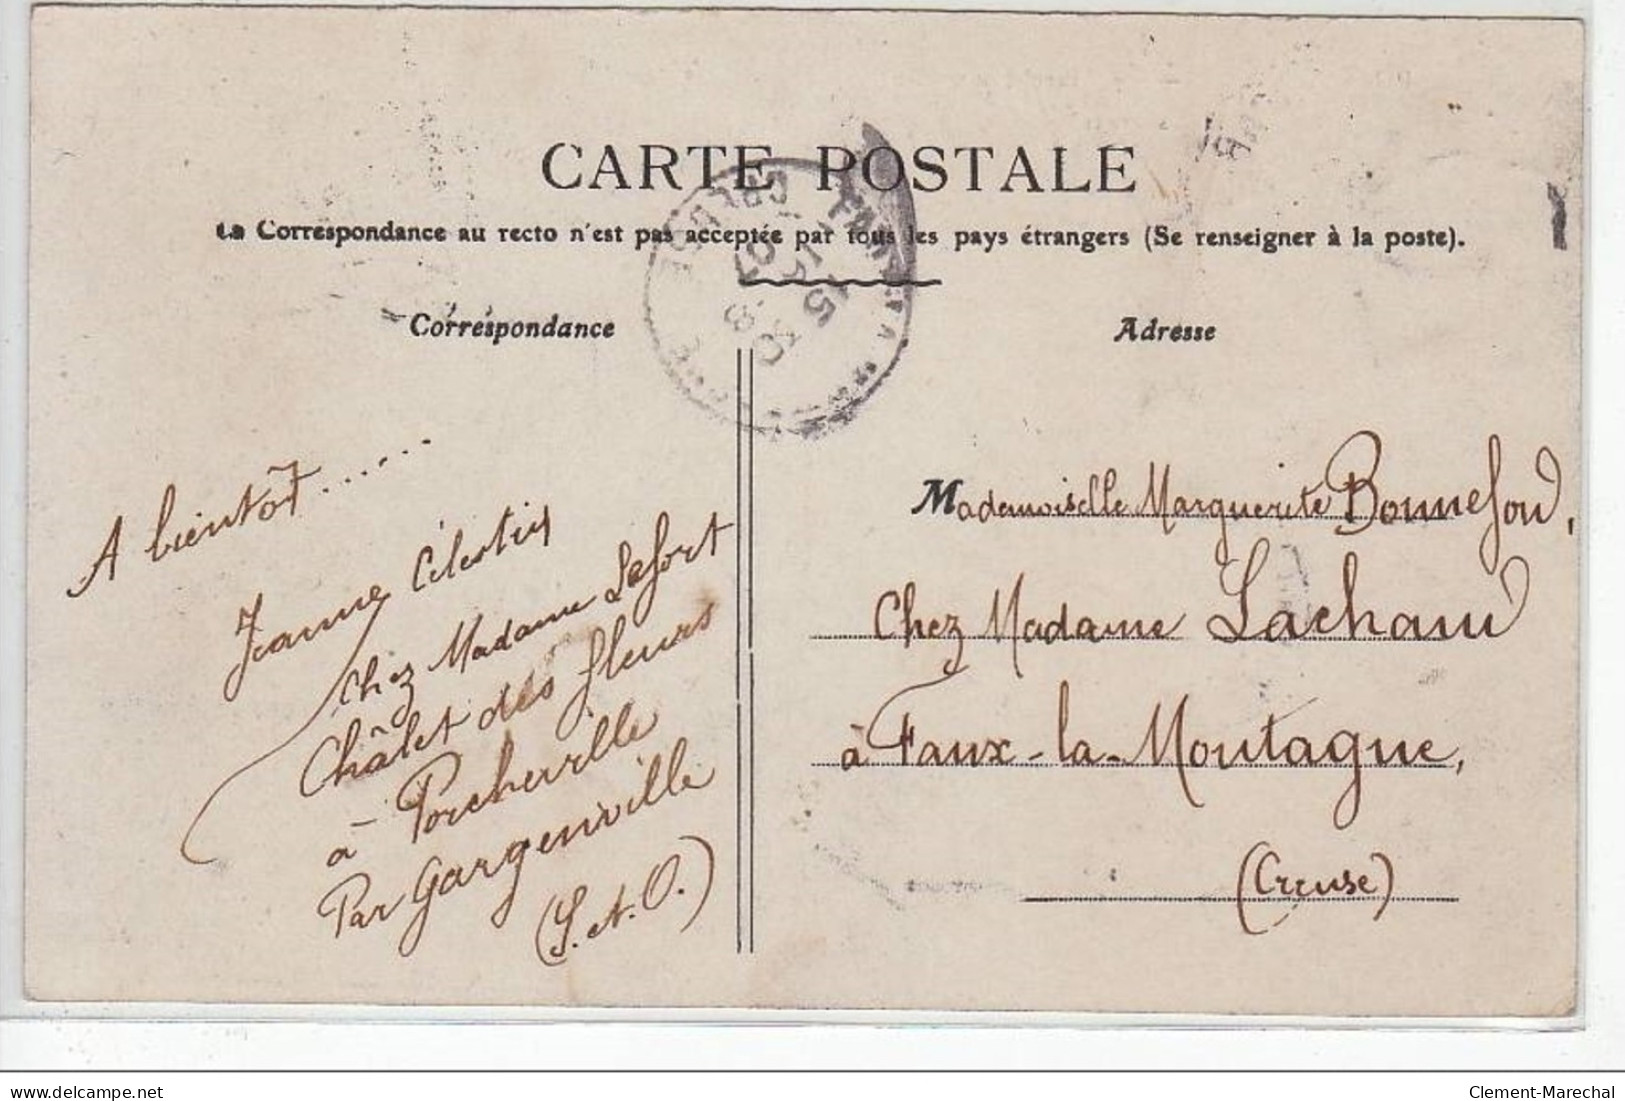 CARTE POSTALE
La Correspondance au recto n'est pas acceptée par tous les pays étrangers (Se renseigner à la poste).
Correspondance
A bientôt........
Jeanne Célestin
Chez Madame Lefort
Châlet des fleurs
à Porcheville
Par Gargenville
(S.et.O.)
Adresse
Mademoiselle Marguerite Bonnefond,
Chez Madame Lachaud
à Faux-la-Montagne,
(Creuse)
CREUSE
delcampe.net
Clement-Marechal